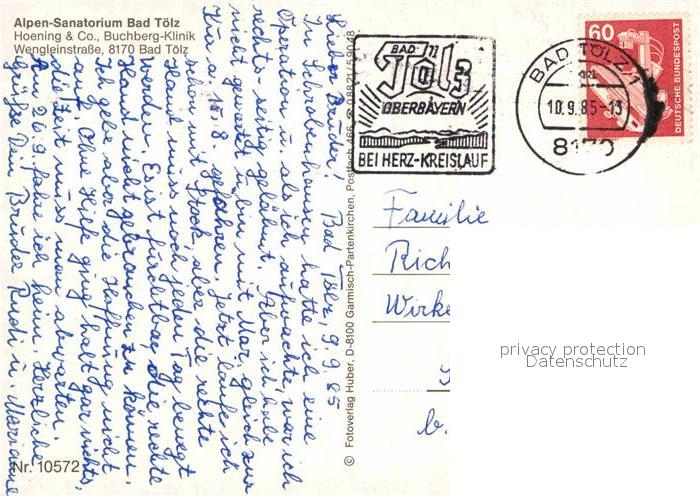 Alpen-Sanatorium Bad Tölz
Hoening & Co., Buchberg-Klinik
Wengleinstraße, 8170 Bad Tölz
Bad Tölz, 9.9.85
Lieber Bruder!
In Schrobenhausen hatte ich eine
Operation u. als ich aufwachte, war ich
rechts-seitig gelähmt. Aber ich habe
nicht gerastet u. bin mit Mar. gleich zur
Kur a. 15.8. gefahren. Jetzt laufe ich
schon mit Stock, aber die rechte
Hand muss noch jeden Tag bewegt
werden. Es ist furchtbar, die rechte
Hand nicht gebrauchen zu können.
Ich gebe aber die Hoffnung nicht
auf. Ohne Hilfe ging halt gar nichts,
die Zeit muss man abwarten.
Am 26.9. fahre ich heim. Herzliche
Grüße Dein Bruder Rudi u. Marianne
Nr. 10572
© Fotoverlag Huber, D-8100 Garmisch-Partenkirchen, Postfach 466, ☎ 08821/59048
BAD TÖLZ
OBERBAYERN
BEI HERZ-KREISLAUF
BAD TÖLZ 1
10.9.85-13
8170
60
DEUTSCHE BUNDESPOST
Familie
Rich
Wirke
b.
privacy protection
Datenschutz